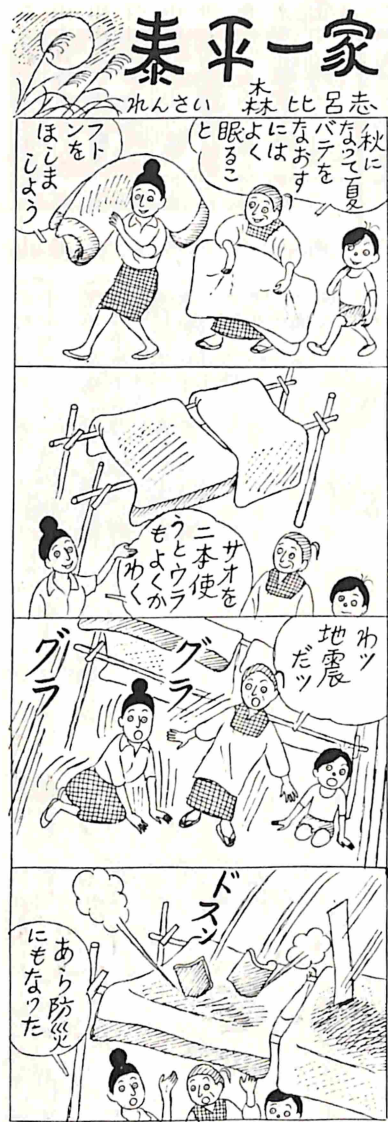 泰平一家
れんさい 森比呂志
秋に
なって夏
バテを
なおす
には
よく
眠るこ
と
フト
ンを
ほしま
しよう
サオを
二本使
うとウラ
もよくか
わく
わッ
地震
だッ
グラ
グラ
ドスン
あら防災
にもなった